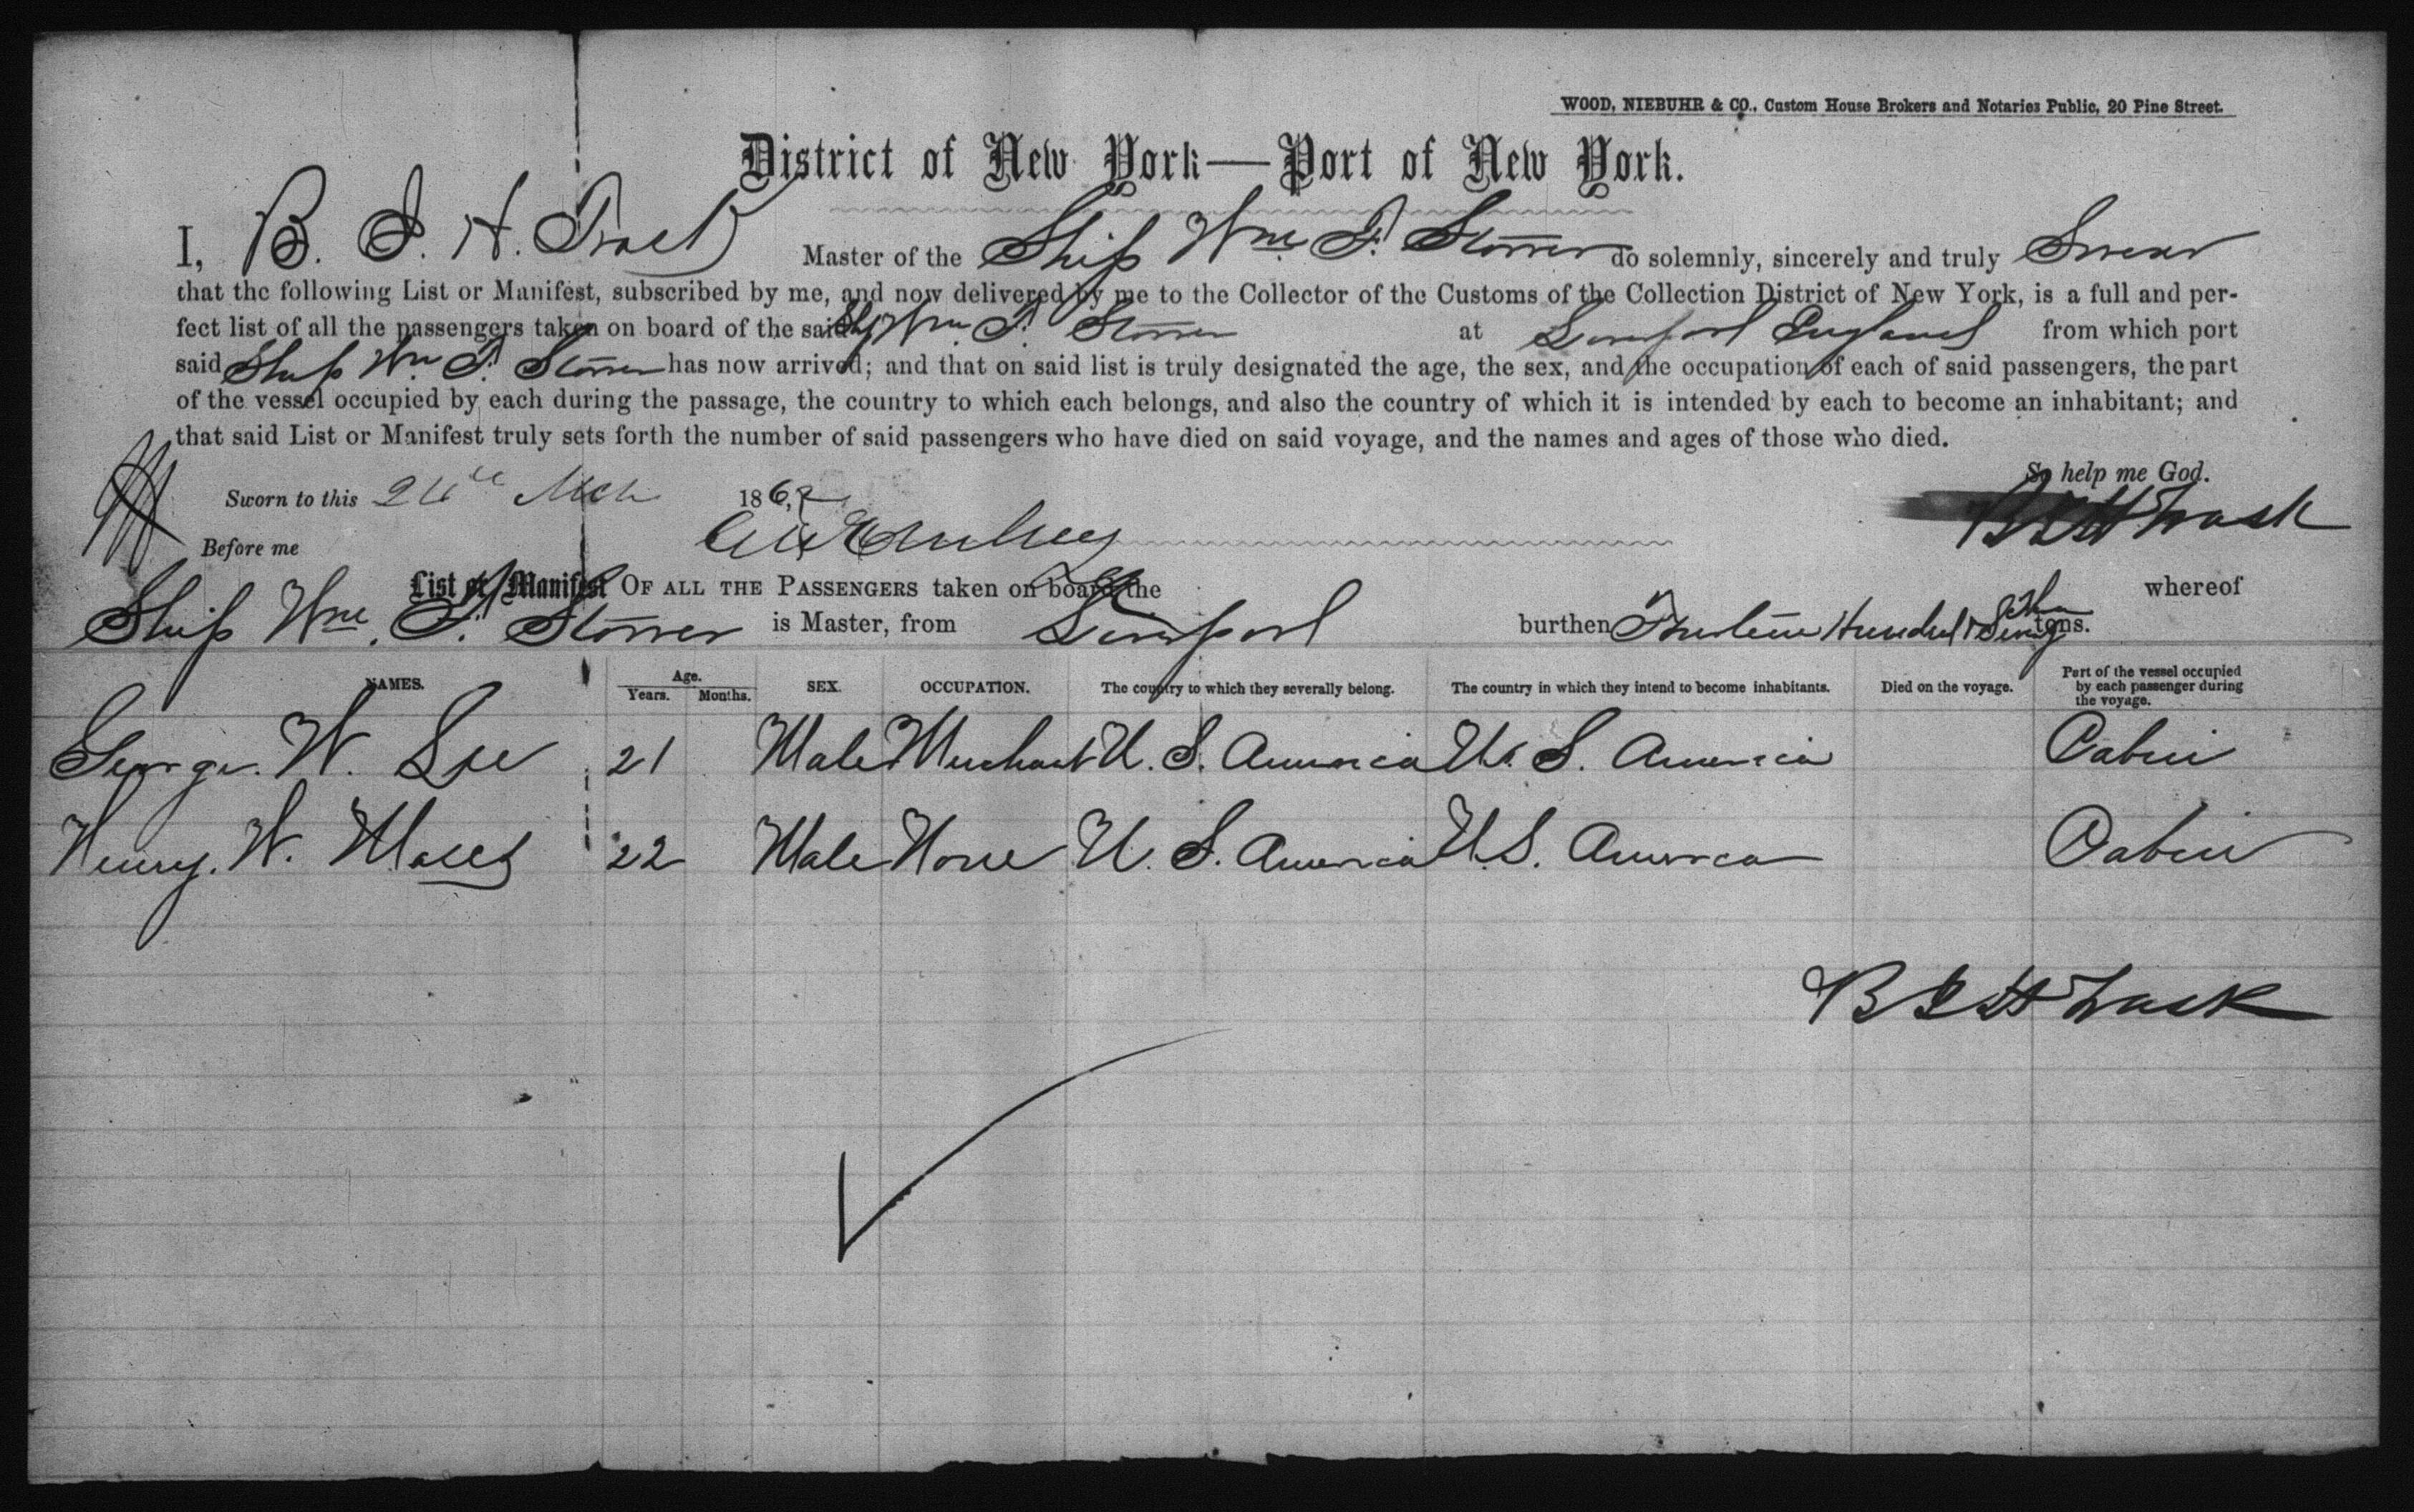 WOOD, NIEBUHR & CO., Custom House Brokers and Notaries Public, 20 Pine Street.
District of New York—Port of New York.
I, B. J. H. Trask Master of the Ship Wm. F. Storrer do solemnly, sincerely and truly Swear
that the following List or Manifest, subscribed by me, and now delivered by me to the Collector of the Customs of the Collection District of New York, is a full and per-
fect list of all the passengers taken on board of the said Ship Wm. F. Storrer at Liverpool England from which port
said Ship Wm F. Storrer has now arrived; and that on said list is truly designated the age, the sex, and the occupation of each of said passengers, the part
of the vessel occupied by each during the passage, the country to which each belongs, and also the country of which it is intended by each to become an inhabitant; and
that said List or Manifest truly sets forth the number of said passengers who have died on said voyage, and the names and ages of those who died.
So help me God.
Sworn to this Mch 186
Trask
Before me
List or Manifest OF ALL THE PASSENGERS taken on board the
whereof
Ship Wm. F. Storrer is Master, from Liverpool burthen Hundred tons.
NAMES. Age. Years. Months. SEX. OCCUPATION. The country to which they severally belong. The country in which they intend to become inhabitants. Died on the voyage. Part of the vessel occupied by each passenger during the voyage.
George. W. Lee 21 Male Merchant U. S. America U. S. America Cabin
Henry. W. 22 Male None U. S. America U.S. America Cabin
Trask